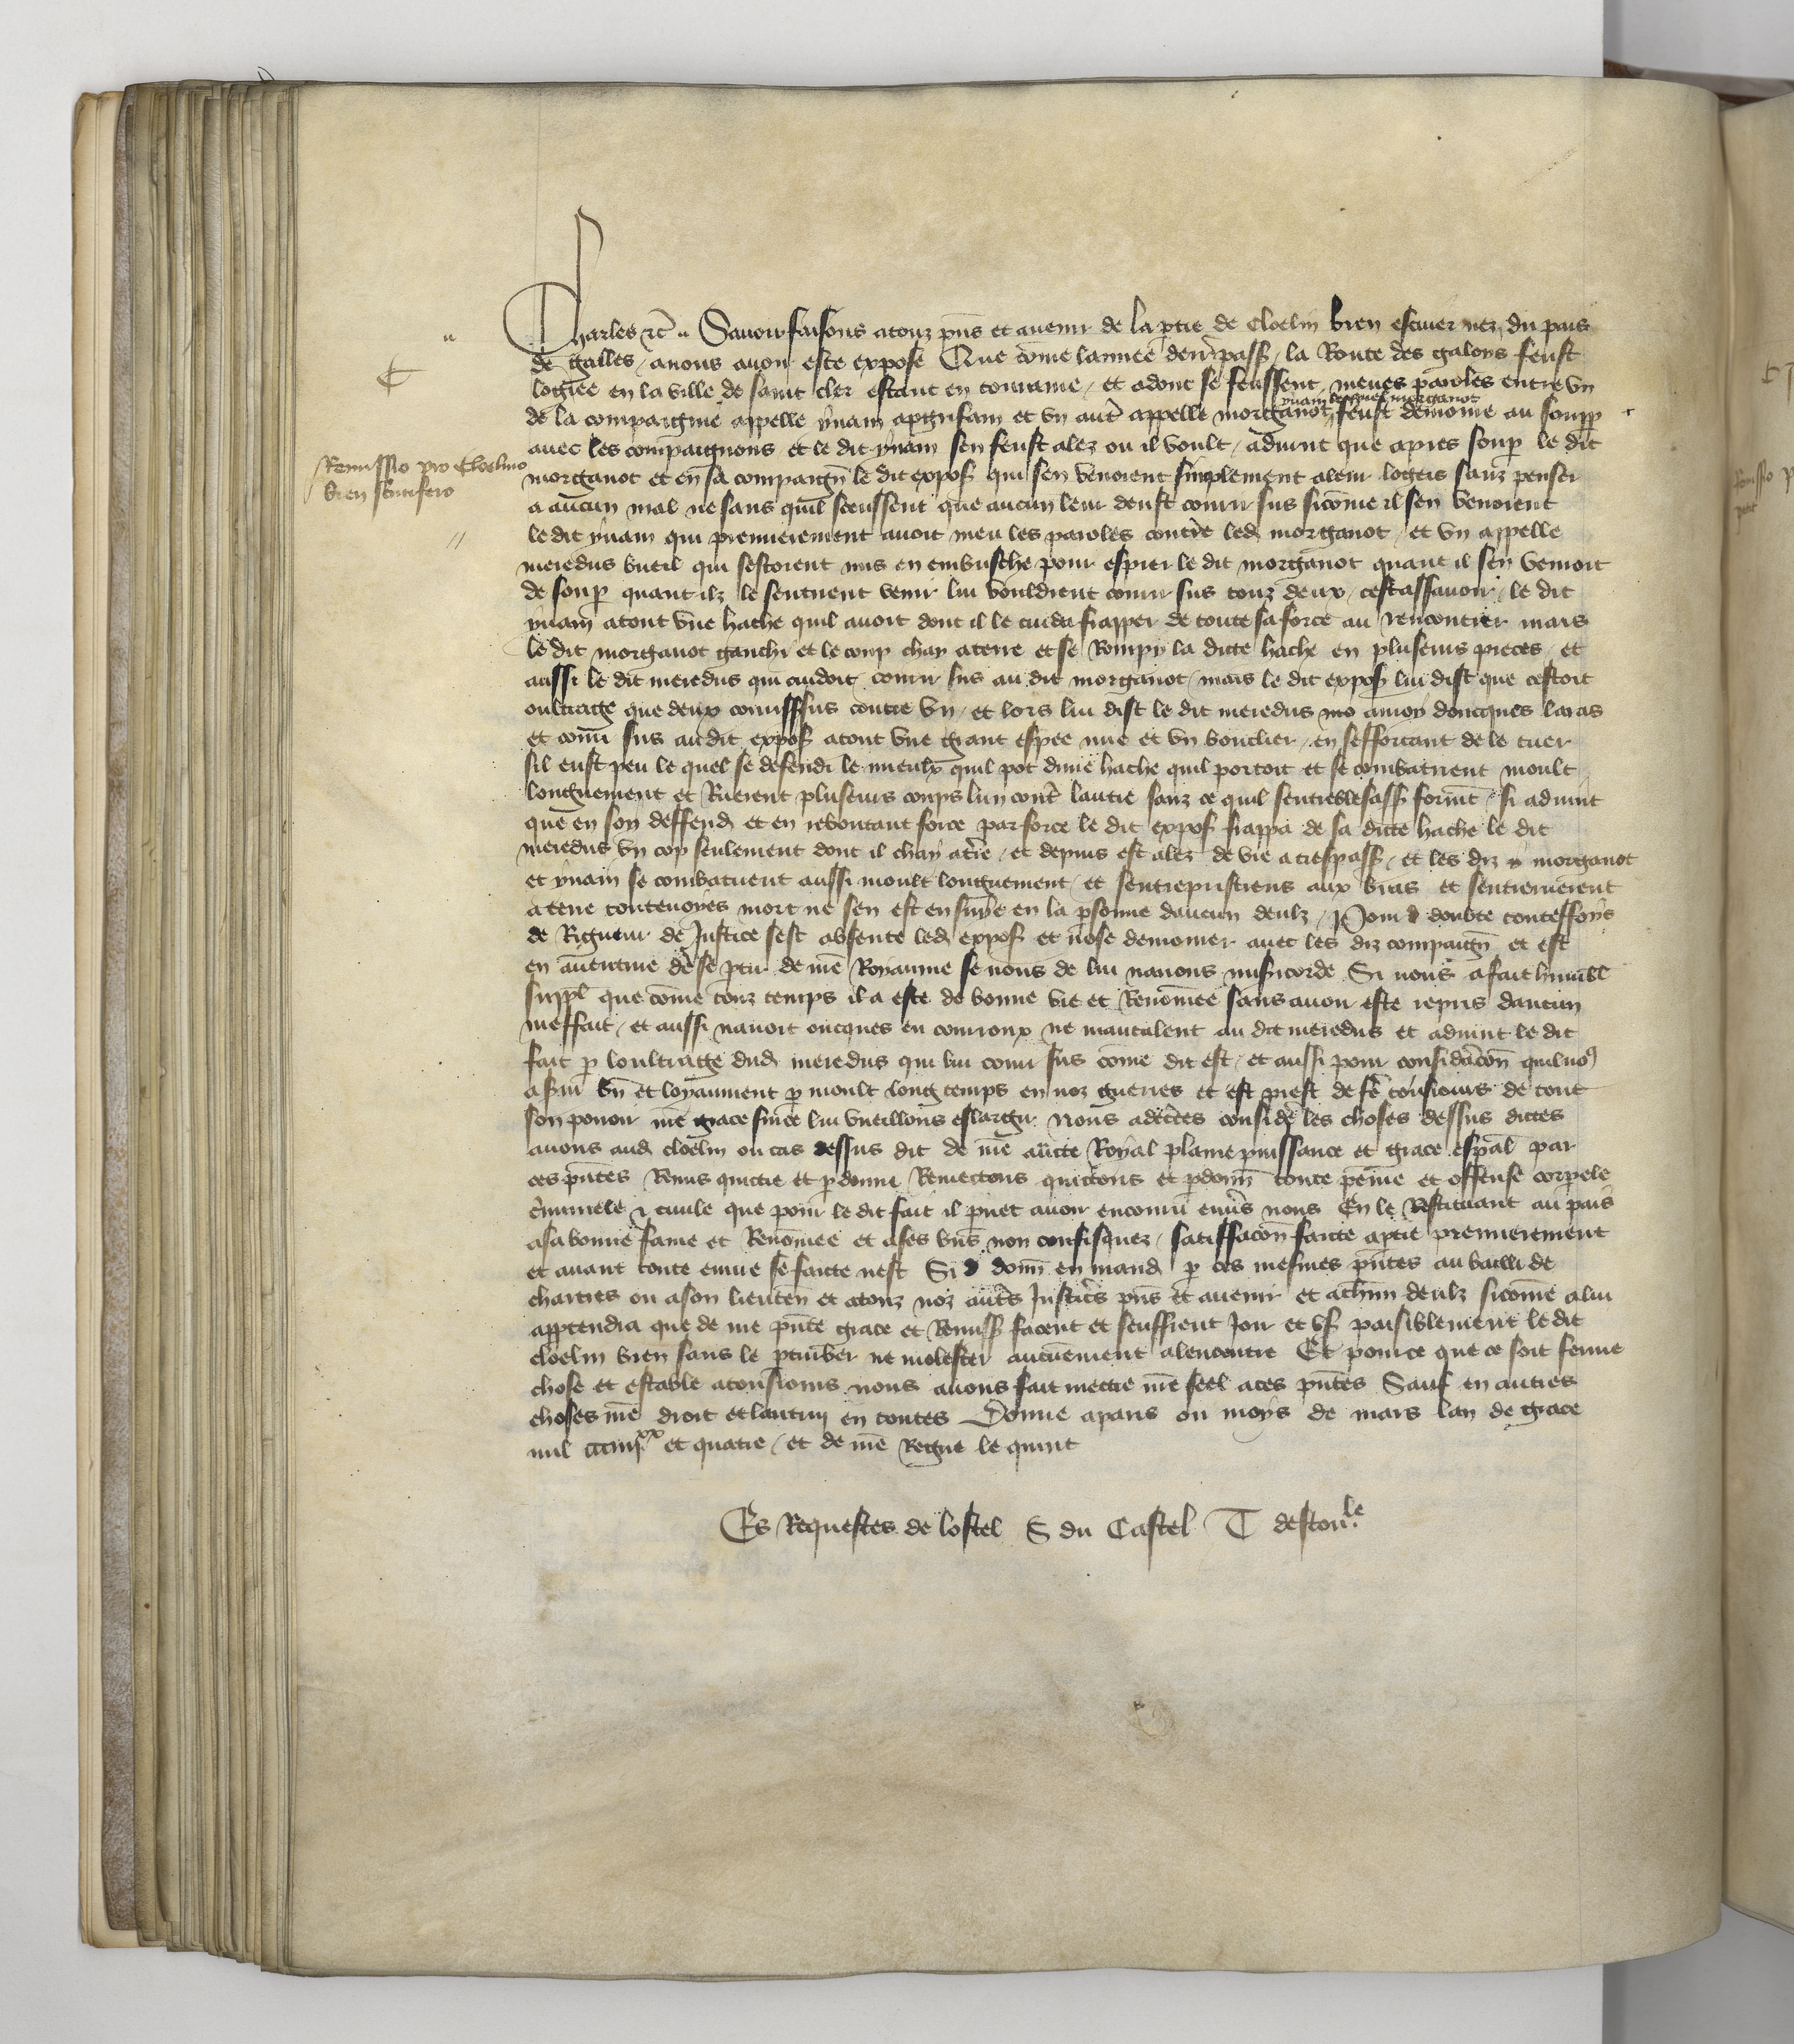 Charles etc̃ Savoir faisons a touz p̃ns et avenir de la p̃tie de Cloelin bien escuier nez du pais
de galles a nous avoir este expose Que cõme lannee den̄r pass̃ la Route des galoys feust
logiee en la ville de saint cler estant en touraine et adonc se feussent meues paroles entre vn
de la compaignie appelle yuain apgrifain et vn aut̃ appelle morganot yuain lequel morganot feust demoure au soupp̃
avec les compaignons et le dit yuain sen feust alez ou il voult advint que apres soup̃ le dit
morganot et en sa compaign̄ le dit expos̃ qui sen venoient simplement a leur logeis sanz penser
a aucun mal ne sans quil sceussent que aucun leur deust courir sus si cõme il sen venoient
le dit yuain qui premierement avoit meu les paroles contre led̃ morganot et vn appelle
meredus bueil qui sestoient mis en embusche pour espier le dit morganot quant il sen venoit
de soup̃ quant ilz le sentirent venir lui vouldrent courir sus touz deux cestassavoir le dit
yuain atout vne hache quil avoit dont il le cuida frapper de toute sa force au rencontrer mais
le dit morganot gauchi et le coup chay a terre et se Rompy la dicte hache en pluseurs pieces et
aussi le dit meredus qui cuidoit courir sus au dit morganot mais le dit expos̃ lui dist que cestoit
oultrage que deux courissẽt sus contre vn et lors lui dist le dit meredus
et couru sus au dit expos̃ atout vne grant espee nue et vn bouclier en sefforcant de le tuer
sil eust peu le quel se defendi le mieulx quil pot dune hache quil portoit et se combatirent moult
longuement et Ruerent pluseurs coups lun cont̃ lautre sanz ce quil sentreblecass̃ formēt si advint
que en soy deffend̃ et en reboutant force par force le dit expos̃ frappa de sa dicte hache le dit
meredus vn cop seulement dont il chay a t̃re et depuis est alez de vie a trespass̃ et les diz morganot
et yuain se combatirent aussi moult longuement et sentrepristrent aux bras et sentreruerent
a terre toutevoyes mort ne sen est ensuye en la p̃sonne daucun deulz Pour doubte touteffoys
de Rigueur de Justice sest absente led̃ expos̃ et nose demourer avec les diz compaign̄ et est
en aventure de se p̃tir de nr̄e Royaume se nous de lui navons misericorde Si nous a fait humbl̃
suppl̃ que cõme touz temps il a este de bonne vie et Renõmee sans avoir este repris daucun
meffait et aussi navoit oncques eu courroux ne mautalent au dit meredus et advint le dit
fait p̃ loultrage dud̃ meredus qui lui couru sus cõme dit est et aussi pour considẽcõn quil no9
a s̃vi bn̄ et loyaument p̃ moult long temps en noz guerres et est prest de fẽ tousiours de tout
son pouoir nr̄e grace sur ce lui vueillons eslargir Nous adecertes consid̃e les choses dessus dictes
avons aud̃ cloelin ou cas dessus dit de nr̄e auct̃e Royal plaine puissance et grace esp̃al par
ces p̃ntes Remis quictie et p̃donne Remectons quictons et p̃donn̄ toute peine et offense corpele
c̃iminele et civile que pour le dit fait il puet avoir encouru env̄s nous En le Restituant au pais
a sa bonne fame et Renõmee et a ses biẽs non confisquez satisfacõn faicte a p̃tie premierement
et avant toute euvre se faicte nest Si donn̄ en mand̃ p̃ ces mesmes p̃ntes au bailli de
chartres ou a son lieuten̄ et a touz noz aut̃s Justic̃s p̃ns et avenir et a ch̃un deulz si cõme a lui
appartendra que de nr̄e p̃nte grace et Remiss̃ facent et seuffrent Joir et vs̃ paisiblement le dit
cloelin bien sans le p̃turber ne molester aucunement alencontre Et pour ce que ce soit ferme
chose et estable a tousiours nous avons fait mectre nr̄e seel a ces p̃ntes Sauf en autres
choses nr̄e droit et lautruy en toutes Donne a paris ou moys de mars lan de grace
mil ccc iiij xx et quatre et de nr̄e Regne le quint
Remissio pro Cloelino
bien scutifero
Es Requestes de lostel S du Castel T destou le